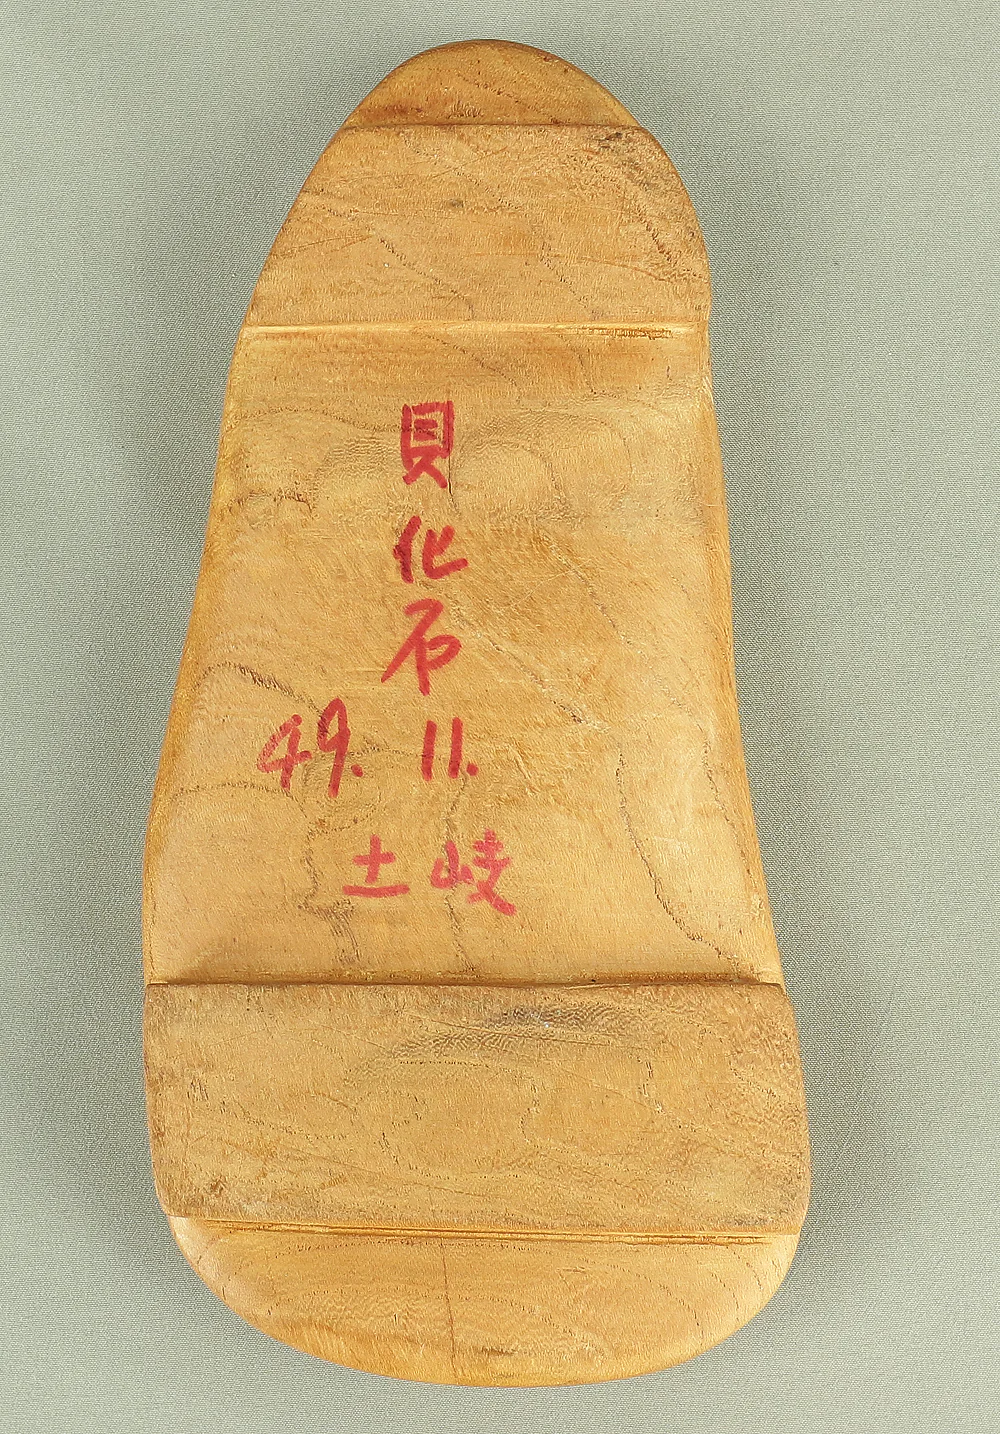 貝化石
49. 11.
土岐